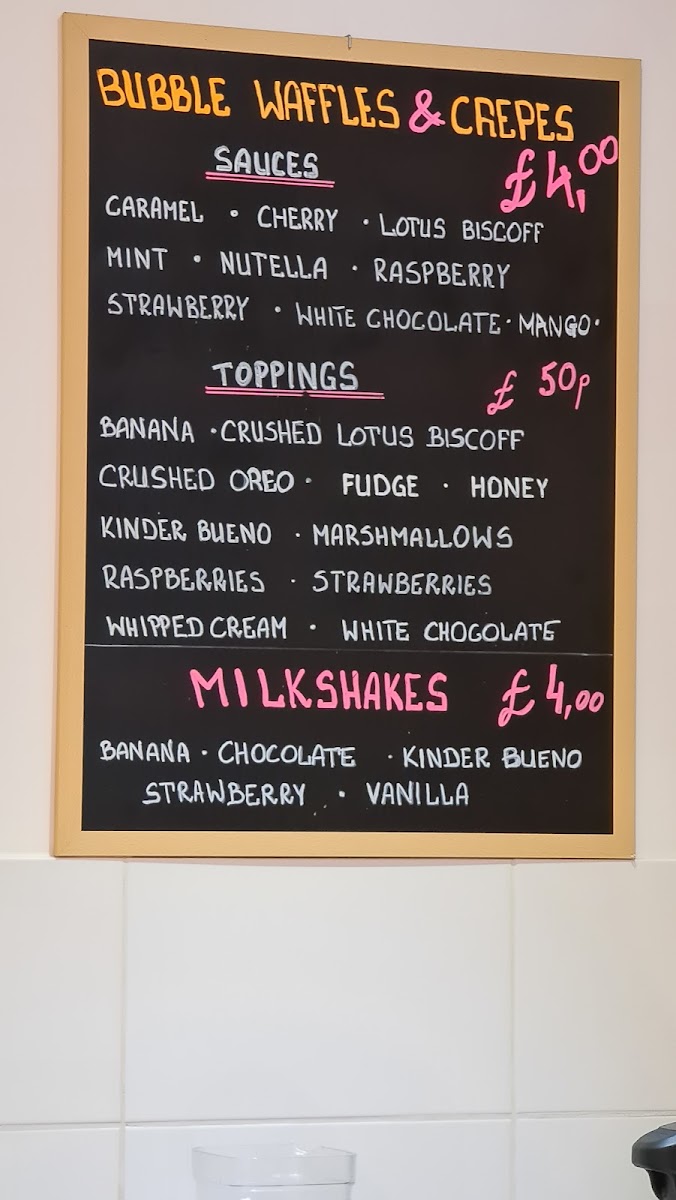 BUBBLE WAFFLES & CREPES
SAUCES £4,00
CARAMEL • CHERRY • LOTUS BISCOFF
MINT • NUTELLA • RASPBERRY
STRAWBERRY • WHITE CHOCOLATE • MANGO •
TOPPINGS £ 50p
BANANA • CRUSHED LOTUS BISCOFF
CRUSHED OREO • FUDGE • HONEY
KINDER BUENO • MARSHMALLOWS
RASPBERRIES • STRAWBERRIES
WHIPPED CREAM • WHITE CHOCOLATE
MILKSHAKES £4,00
BANANA • CHOCOLATE • KINDER BUENO
STRAWBERRY • VANILLA